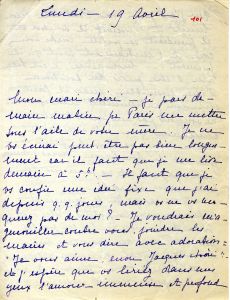 Lundi - 19 Avril
101
Mon mari chéri - je pars de-
main matin pr Paris me mettre
sous l'aile de votre mère. Je ne
vs écrirai peut être pas bien longue-
ment car il faut que je me lève
demain à 5h. - Il faut que je
vs confie une idée fixe que j'ai
depuis q.q. jours, mais vs ne vs
pas de moi? - Je voudrais m'a-
genouiller contre vous, joindre les
mains et vous dire avec adoration:
"Je vous aime, mon Jacques chéri"
et j'espère que vs liriez dans mes
yeux l'amour immense et profond